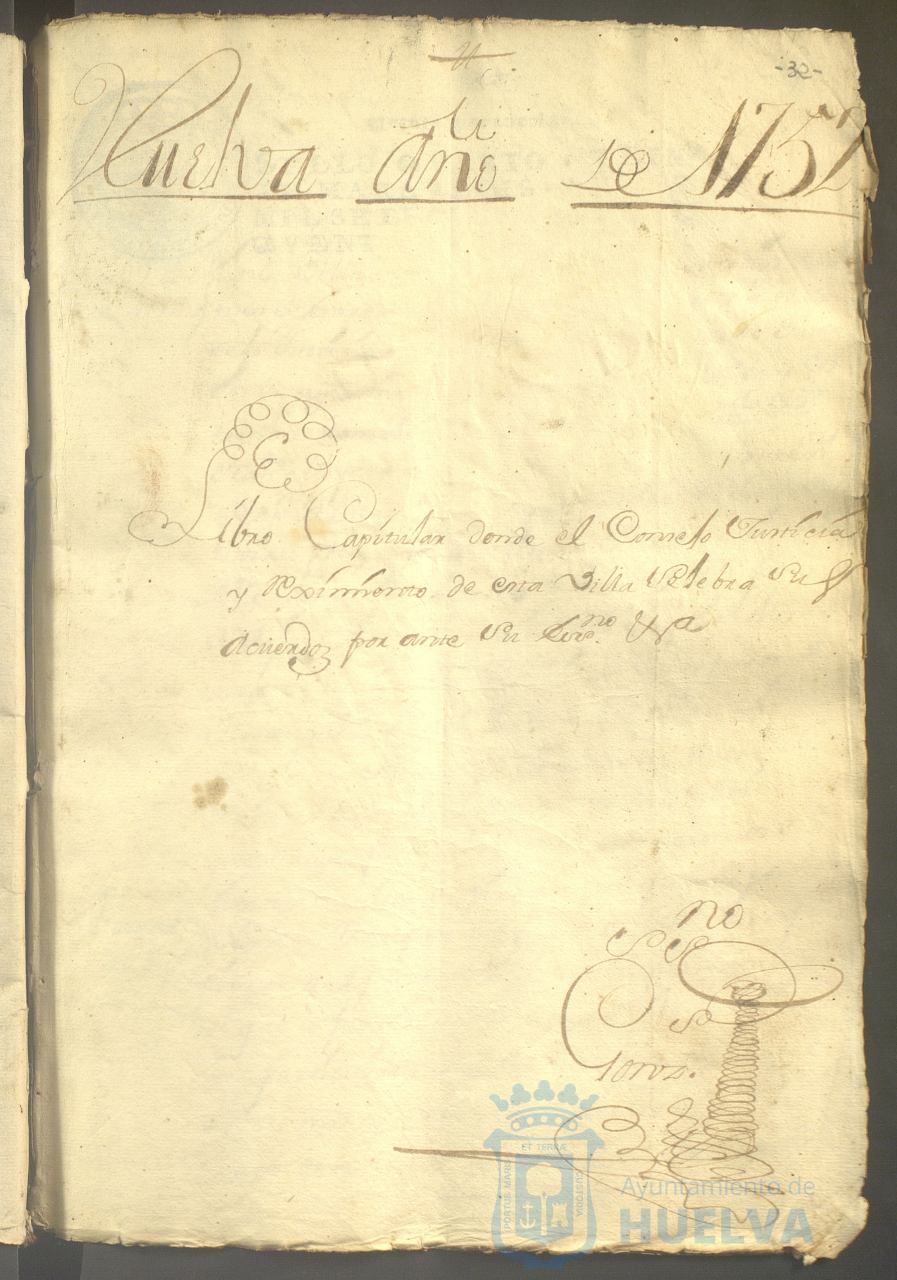 -32-
Huelva Año de 1752
Libro Capitular donde el Consejo Justicia
y Reximiento de esta Villa Selebra Su
Acuerdoz por ante Su Ess.no
no
ET TERRÆ
PORTUS MARIS
CUSTODIA
Ayuntamiento de
HUELVA